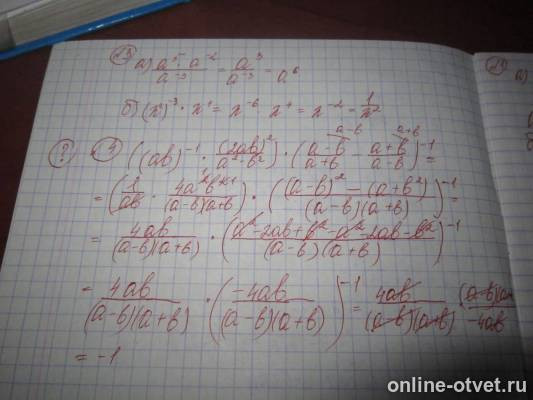 №3
а) (a⁵ · a⁻²)/a⁻³ = a³/a⁻³ = a⁶
б) (x²)⁻³ · x⁴ = x⁻⁶ · x⁴ = x⁻² = 1/x²
? №4 ((ab)⁻¹ · (2ab)²/(a²-b²)) · ((a-b)/(a+b) - (a+b)/(a-b))⁻¹ =
= (1/ab · 4a²b²/((a-b)(a+b))) · (((a-b)² - (a+b²))/((a-b)(a+b)))⁻¹ =
= 4ab/((a-b)(a+b)) · ((a²-2ab+b²-a²-2ab-b²)/((a-b)(a+b)))⁻¹
= 4ab/((a-b)(a+b)) · (-4ab/((a-b)(a+b)))⁻¹ = 4ab/((a-b)(a+b)) · (a-b)(a/-4ab
= -1
online-otvet.ru